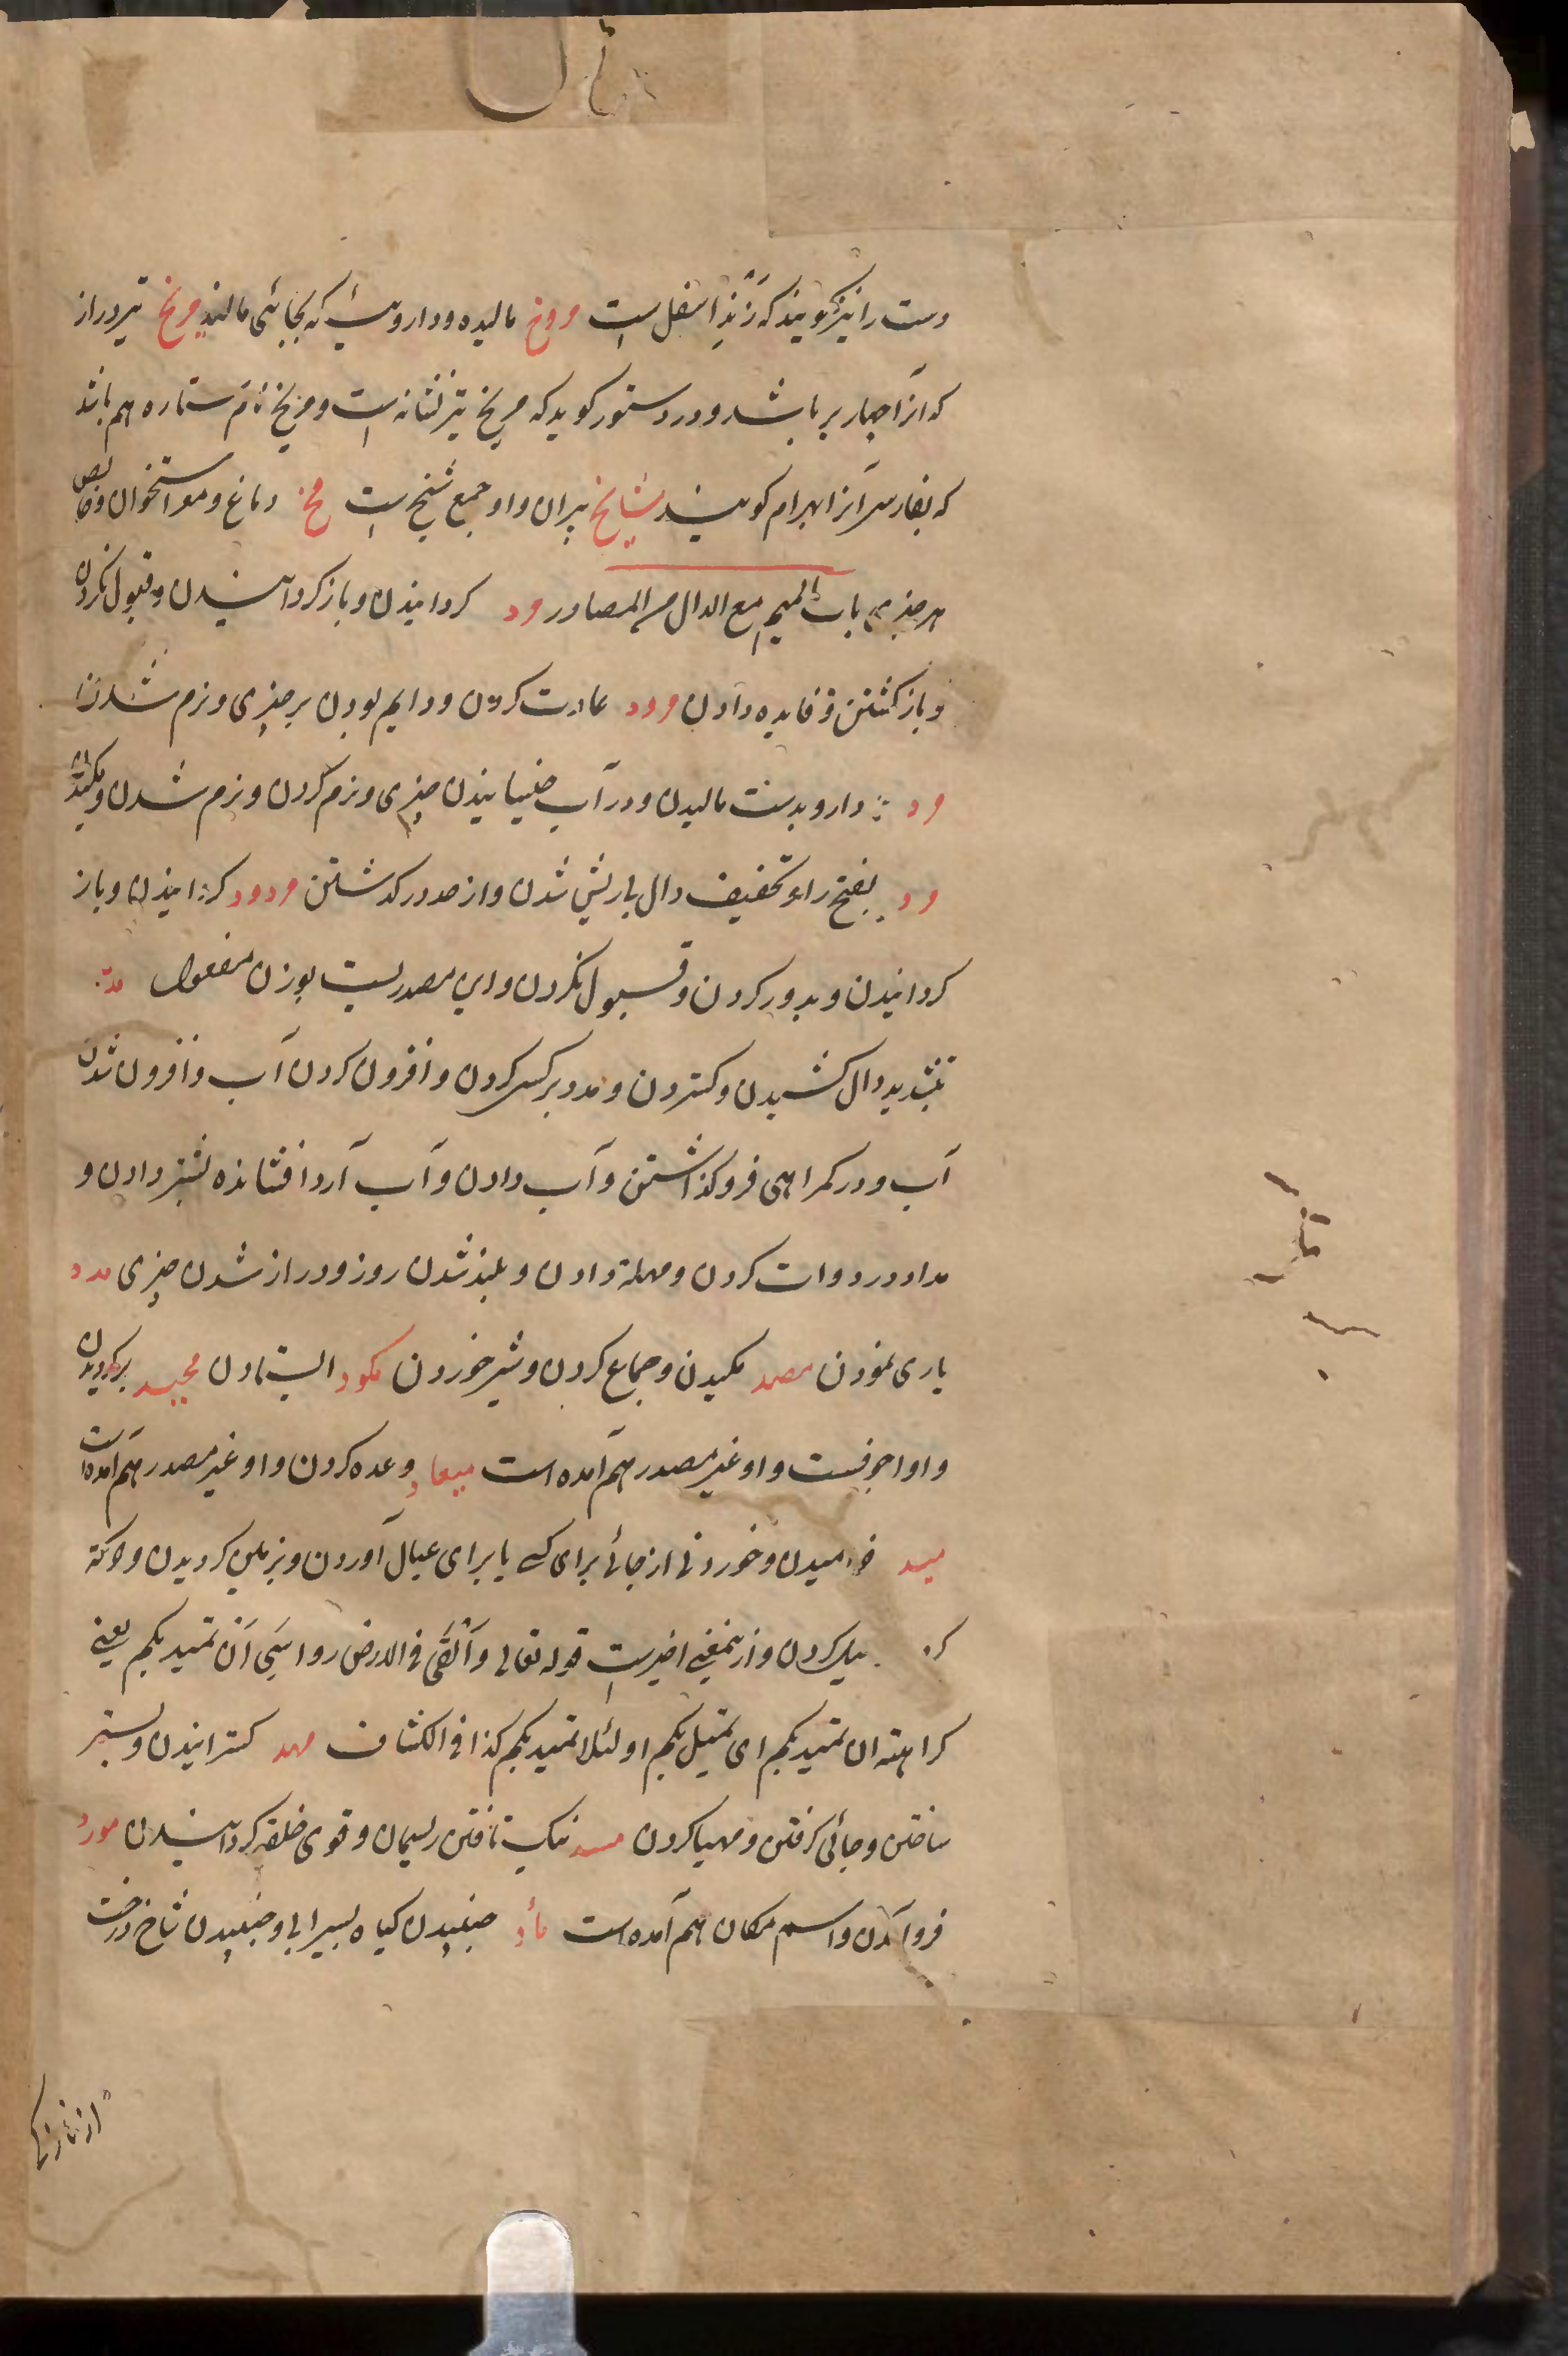 دست را نیز گویند که زَنْدِ اسفل است مروخ مالیده و داروئیکه بجائی مالند مریخ تیر دراز
که آنرا چهار پر باشد و در دستور گوید که مریخ تیر نشانه است و مریخ نام ستاره هم باشد
که بفارسی آنرا بهرام گویند مشایخ پیران و او جمع شیخ است مخ دماغ و مغز استخوان و خالص
هر چیزی باب المیم مع الدال من المصادر رد کردانیدن و باز کردانیدن و قبول نکردن
و باز کشتن و فایده دادن مرود عادت کردن و دایم بودن بر چیزی و نرم شدن
مرد دارو بدست مالیدن و در آب خیسانیدن چیزی و نرم کردن و نرم شدن و مکیدن
مرد بفتح را و تخفیف دال بی ریش شدن و از حد در کذشتن مردود کردانیدن و باز
کردانیدن و بدور کردن و قبول نکردن و این مصدریست بوزن مفعول مد
بتشدید دال کشیدن و کستردن و مدد بر کسی کردن و افزون کردن آب و افزون شدن
آب و در کمراهی فرو کذاشتن و آب دادن و آب آرد افشانده بشتر دادن و
مداد در دوات کردن و مهلة دادن و بلند شدن روز و دراز شدن چیزی مدد
یاری نمودن مصد مکیدن و جماع کردن و شیر خوردن مکود ایستادن محید بر کردیدن
و او اجوفست و او غیر مصدر هم آمده است میعاد وعده کردن و او غیر مصدر هم آمده است
مید خرامیدن و خوردنی از جائی برای کسی یا برای عیال آوردن و بزمین کردیدن و حرکة
کردن میل کردن و ازینمعنی اخیرست قوله تعالی وَأَلْقَى فی الارض رواسی أن تمید بکم یعنی
کراهته ان تمید بکم ای تمیل بکم او لئلا تمید بکم کذا فی الکشاف مهد کسترانیدن و بستر
ساختن و جائی کرفتن و مهیا کردن مسد نیک تافتن ریسمان و قوی خلقة کردانیدن مورد
فرو آمدن و اسم مکان هم آمده است مأد جنبیدن کیاه بسیرابی و جنبیدن شاخ درخت